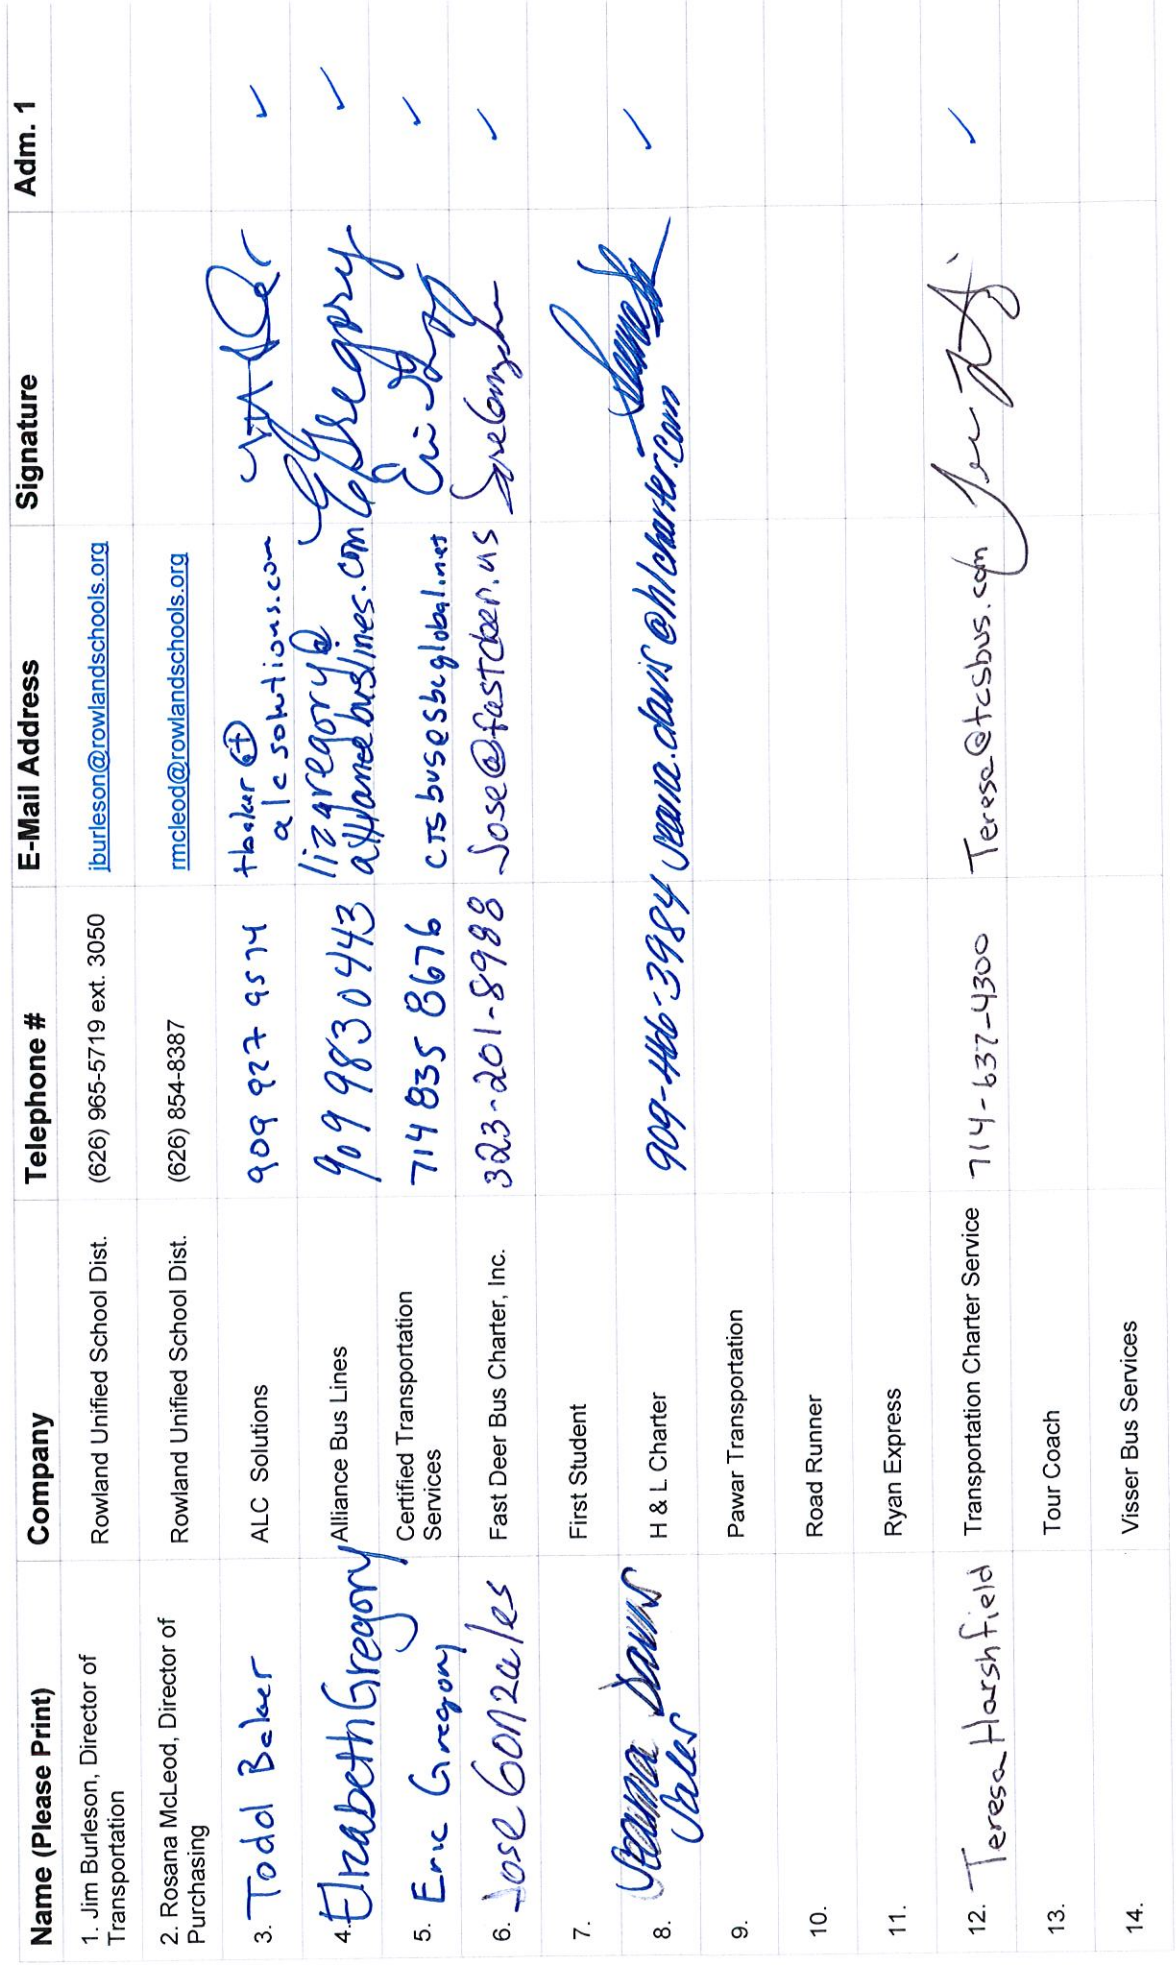 Name (Please Print) Company Telephone # E-Mail Address Signature Adm. 1
1. Jim Burleson, Director of
Transportation
Rowland Unified School Dist.
(626) 965-5719 ext. 3050
jburleson@rowlandschools.org
2. Rosana McLeod, Director of
Purchasing
Rowland Unified School Dist.
(626) 854-8387
rmcleod@rowlandschools.org
3. Todd Baker
ALC Solutions
909 927 9574
tbaker @
alcsolutions.com
✓
4. Elizabeth Gregory
Alliance Bus Lines
909 983 0443
lizgregory@
alliancebuslines.com
EGregory
✓
5. Eric Gregory
Certified Transportation
Services
714 835 8676
CTSbus@sbcglobal.net
✓
6. Jose Gonzales
Fast Deer Bus Charter, Inc.
323-201-8988
Jose@fastdeer.us
Jose Gonzales
✓
7.
First Student
8. Davis
Sales
H & L Charter
909-466-3984
davis@hlcharter.com
✓
9.
Pawar Transportation
10.
Road Runner
11.
Ryan Express
12. Teresa Harshfield
Transportation Charter Service
714-637-4300
Teresa@tcsbus.com
✓
13.
Tour Coach
14.
Visser Bus Services